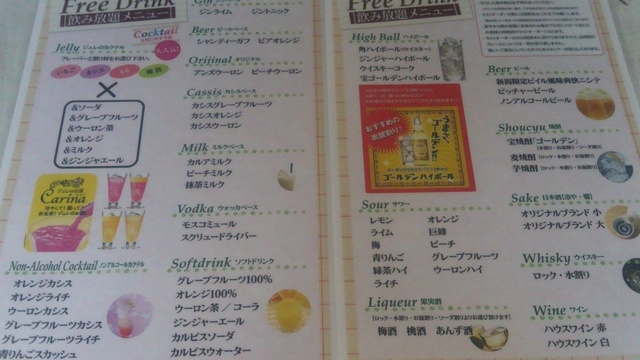 Free Drink
飲み放題メニュー
Cocktail
Jelly ジュレのカクテル
フレーバーと割り材をお選び下さい。
大人気!
いちご
もも
×
&ソーダ
&グレープフルーツ
&ウーロン茶
&オレンジ
&ミルク
&ジンジャエール
Carina
Non-Alcohol Cocktail ノンアルコールカクテル
オレンジカシス
オレンジライチ
ウーロンカシス
グレープフルーツカシス
グレープフルーツライチ
青りんごスカッシュ
Gin
ジンライム ジントニック
Beer ビールベース
シャンティガフ ビアオレンジ
Orijinal オリジナル
アンズウーロン ピーチウーロン
Cassis カシスベース
カシスグレープフルーツ
カシスオレンジ
カシスウーロン
Milk ミルクベース
カルアミルク
ピーチミルク
抹茶ミルク
Vodka ウォッカベース
モスコミュール
スクリュードライバー
Softdrink ソフトドリンク
グレープフルーツ100%
オレンジ100%
ウーロン茶／コーラ
ジンジャーエール
カルピスソーダ
カルピスウォーター
Free Drink
飲み放題メニュー
High Ball ハイボール
角ハイボール(ウイスキー)
ジンジャーハイボール
ウイスキーコーク
宝ゴールデンハイボール
おすすめの
うまっ、
ゴールデン!!
ゴールデンハイボール
Sour サワー
レモン オレンジ
ライム 巨峰
梅 ピーチ
青りんご グレープフルーツ
緑茶ハイ ウーロンハイ
ライチ
Liqueur 果実酒
梅酒 桃酒 あんず酒
Beer ビール
新潟限定ビイル風味爽快ニシテ
ピッチャービール
ノンアルコールビール
Shoucyu 焼酎
宝焼酎「ゴールデン」
麦焼酎
芋焼酎
Sake 日本酒[冷や・燗]
オリジナルブランド 小
オリジナルブランド 大
Whisky ウイスキー
ロック・水割り
Wine ワイン
ハウスワイン 赤
ハウスワイン 白